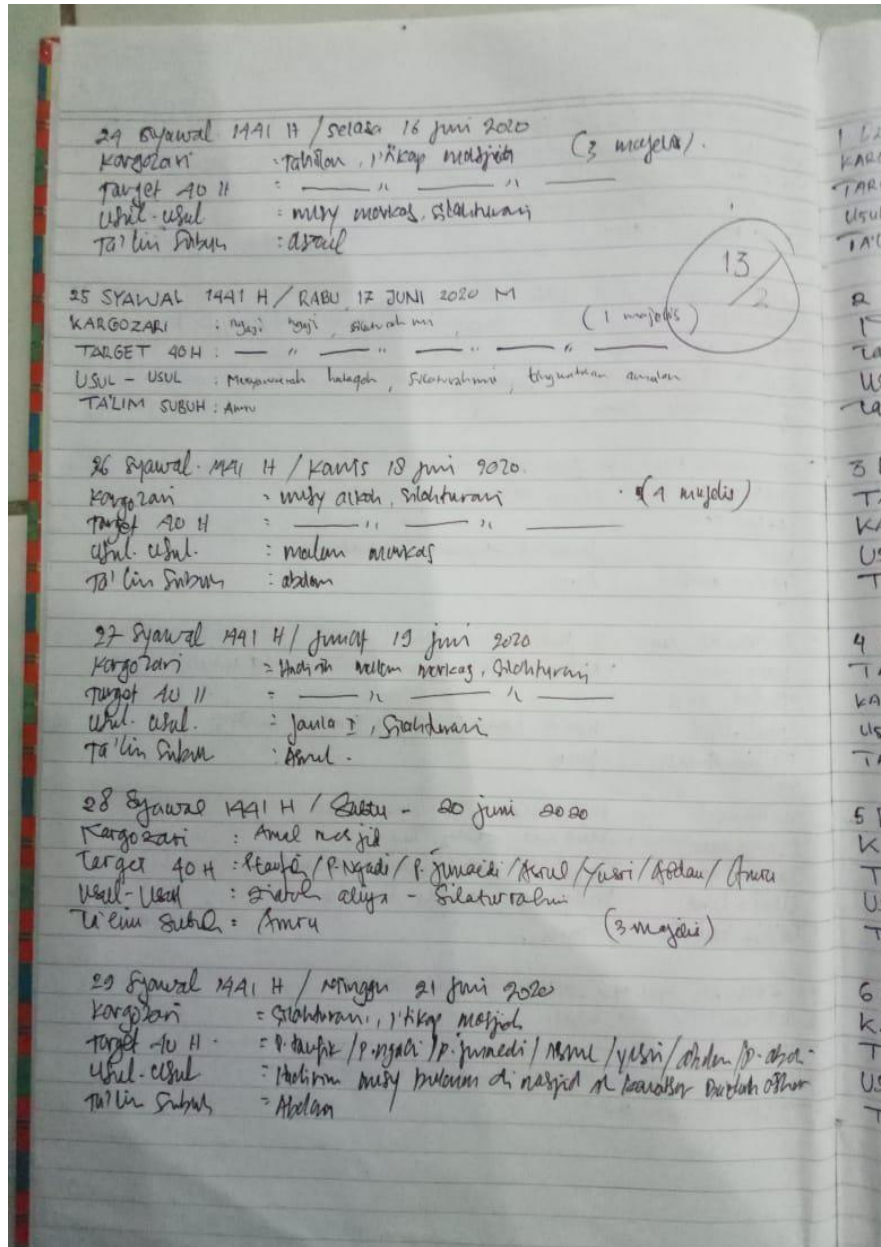 24 Syawal 1441 H / Selasa 16 Juni 2020
Kargozari : Tahlilan, i'tikap masjid (3 majelis).
Target 40 H : — " — " —
Usul-usul : musy markas, silahturami
Ta'lim Subuh : asrul
13/2
25 SYAWAL 1441 H / RABU 17 JUNI 2020 M
KARGOZARI : ngaji ngaji, silaturahmi, (1 majelis)
TARGET 40 H : — " — " — " — " —
USUL - USUL : Musyawarah halaqoh, silaturahmi, tingkatkan amalan
TA'LIM SUBUH : Amru
26 Syawal 1441 H / Kamis 18 Juni 2020.
Kargozari : musy, silahturami (4 majelis)
Target 40 H : — " — " —
Usul-usul. : malam markas
Ta'lim Subuh : abdan
27 Syawal 1441 H / Jumat 19 Juni 2020
Kargozari = Hadirin malam markas, silahturami
Target 40 H = — " — " —
Usul-usul. = Jaula I, silahturami
Ta'lim Subuh : Asrul.
28 Syawal 1441 H / Sabtu - 20 juni 2020
Kargozari : Amal masjid
Target 40 H : P.taufik / P.Ngadi / P.Junaedi / Asrul / Yusri / Abdan / Amru
Usul-Usul : - Silaturrahmi
Ta'lim Subuh = Amru (3 majelis)
29 Syawal 1441 H / Minggu 21 Juni 2020
Kargozari = Silahturami, i'tikap masjid
Target 40 H = P.taufik / P.ngadi / P.junaedi / Asrul / yusri / abdan / P.abdi
Usul-usul = Hadirin musy bulanan di masjid al kautsar
Ta'lim Subuh = Abdan